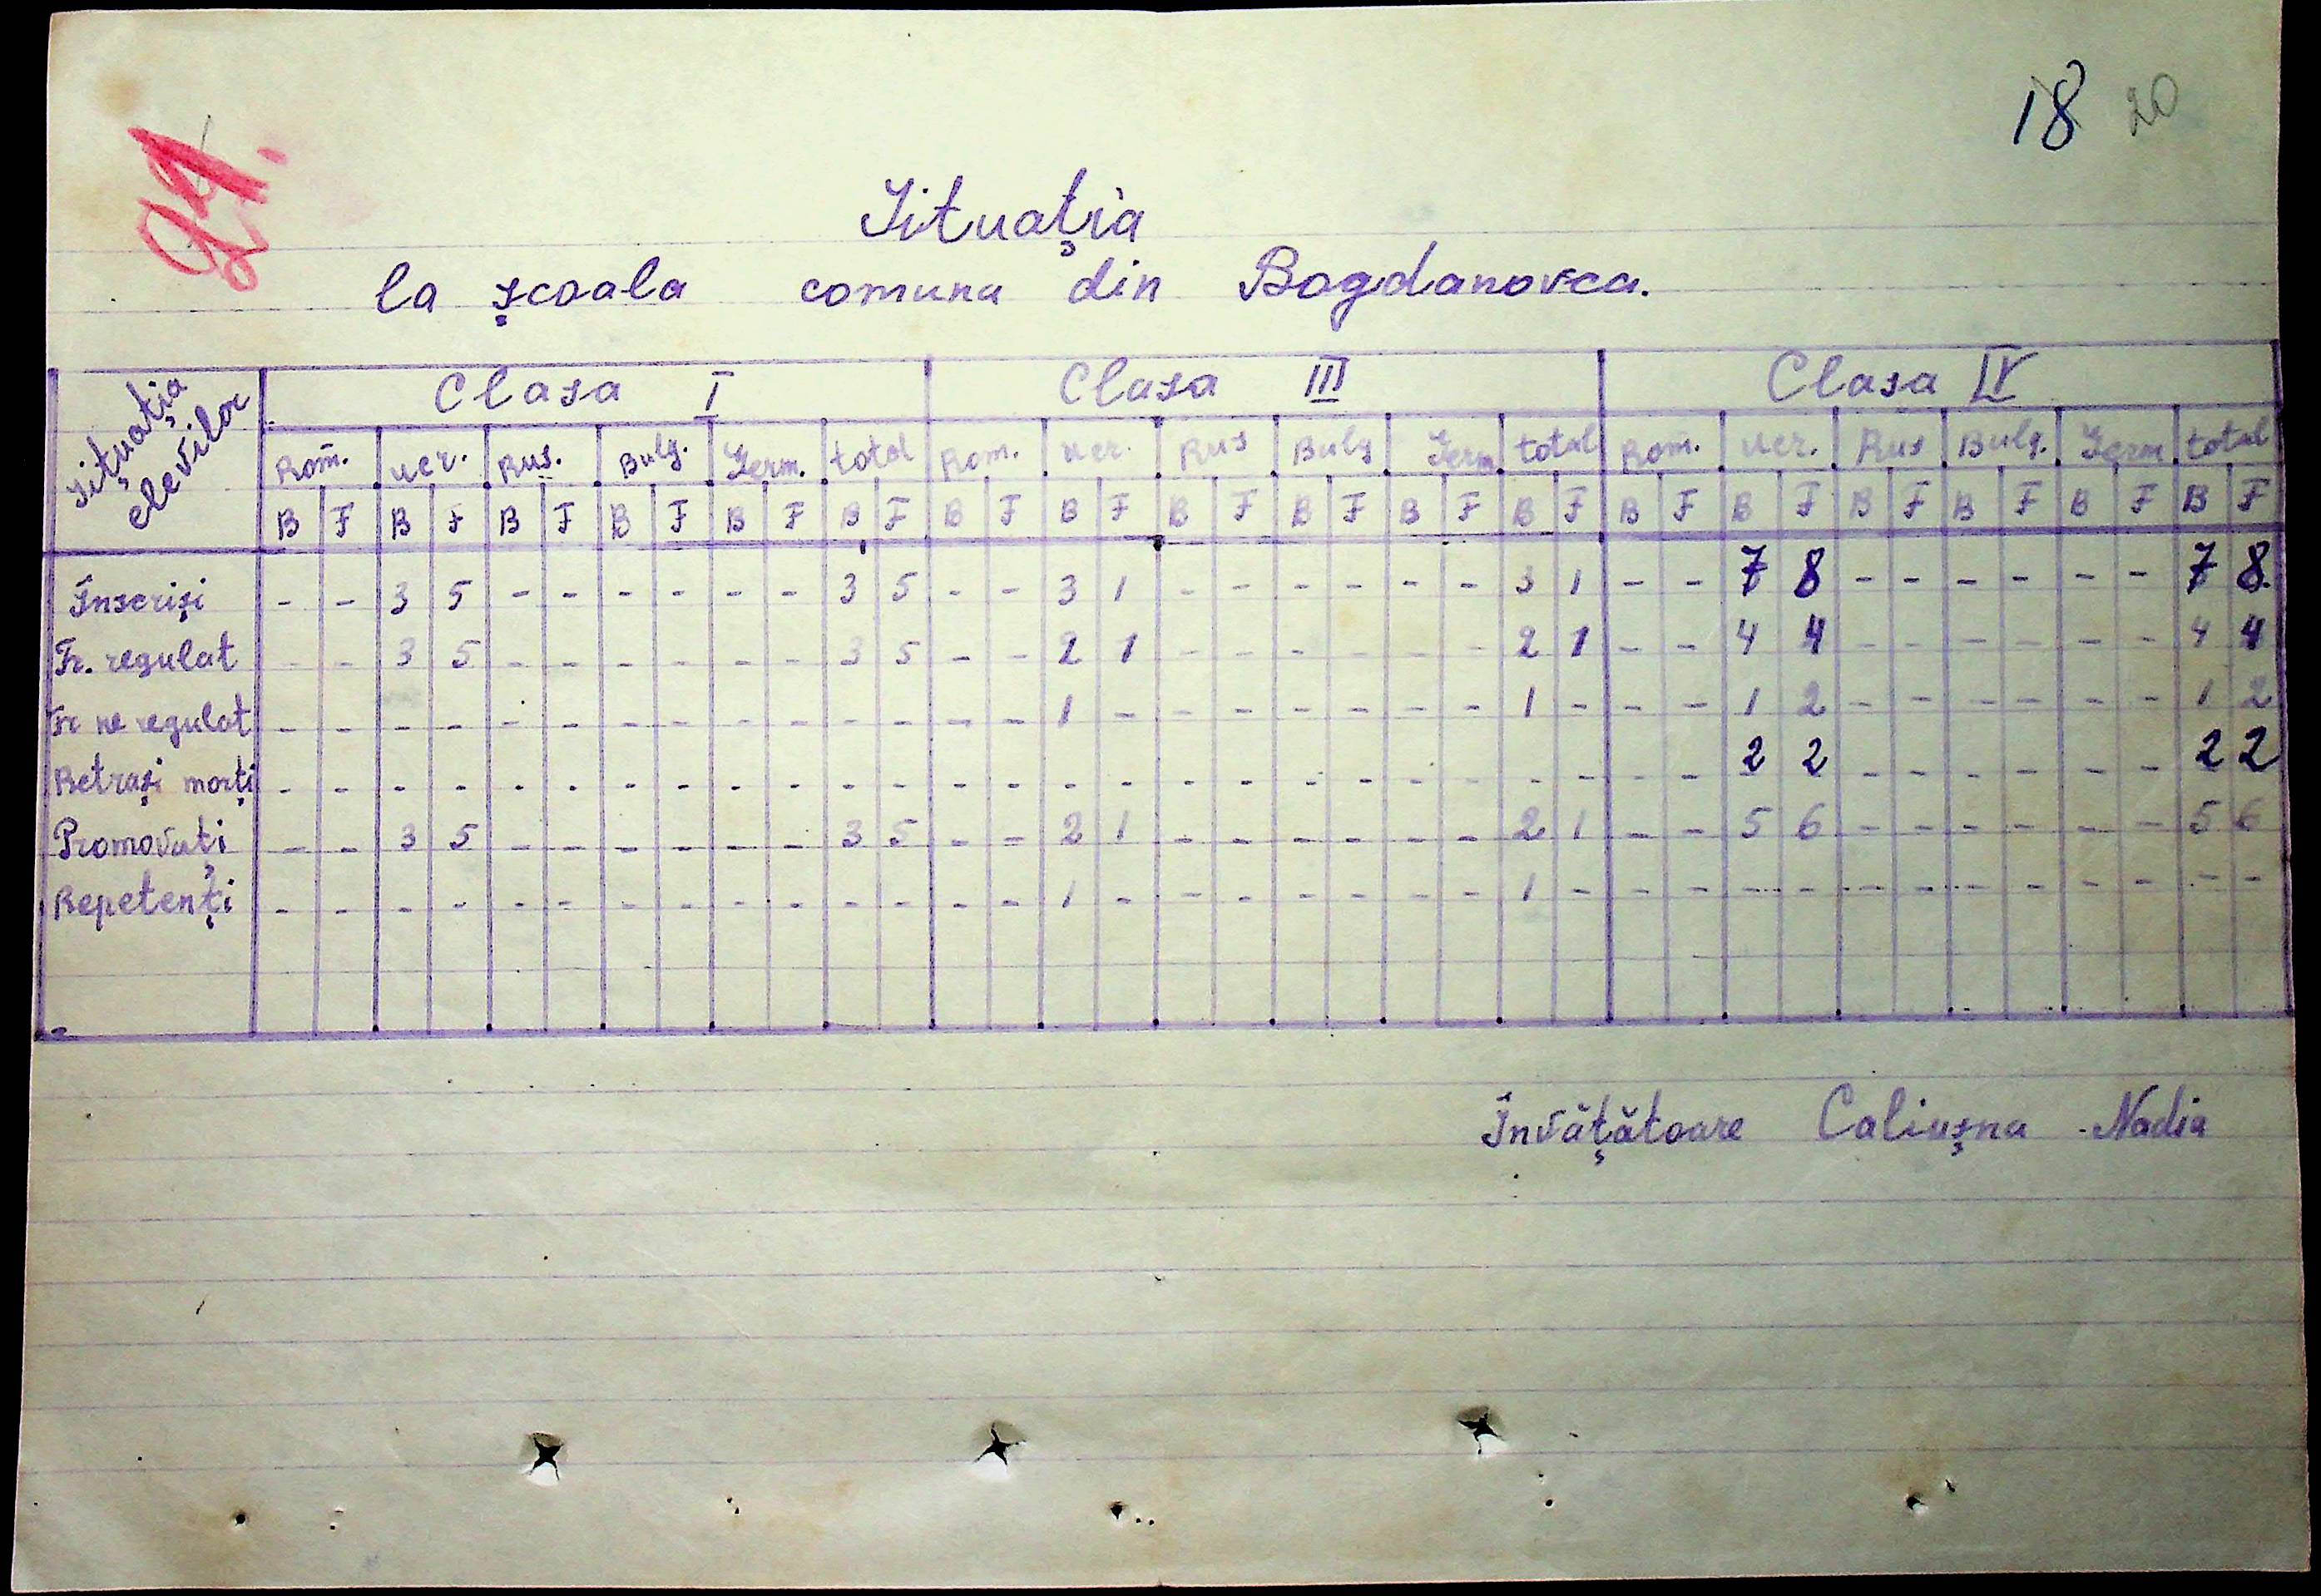 18 20
21.
Situaţia
la şcoala comuna din Bogdanovca.
Situaţia elevilor | Clasa I | Clasa III | Clasa IV
Rom. | ucr. | Rus. | Bulg. | Germ. | total | Rom. | ucr. | Rus | Bulg | Germ | total | Rom. | ucr. | Rus | Bulg. | Germ | total
B F B F B F B F B F B F B F B F B F B F B F B F B F B F B F B F B F B F
Înscrişi - - 3 5 - - - - - - 3 5 - - 3 1 - - - - - - 3 1 - - 7 8 - - - - - - 7 8.
Fr. regulat - - 3 5 - - - - - - 3 5 - - 2 1 - - - - - - 2 1 - - 4 4 - - - - - - 4 4
Fr ne regulat - - - - - - - - - - - - - - 1 - - - - - - - 1 - - - 1 2 - - - - - - 1 2
Retraşi morţi - - - - - - - - - - - - - - - - - - - - - - - - - - 2 2 - - - - - - 2 2
Promovaţi - - 3 5 - - - - - - 3 5 - - 2 1 - - - - - - 2 1 - - 5 6 - - - - - - 5 6
Repetenţi - - - - - - - - - - - - - - 1 - - - - - - - 1 - - - - - - - - - - - - -
Învăţătoare Caliuşna Nadia